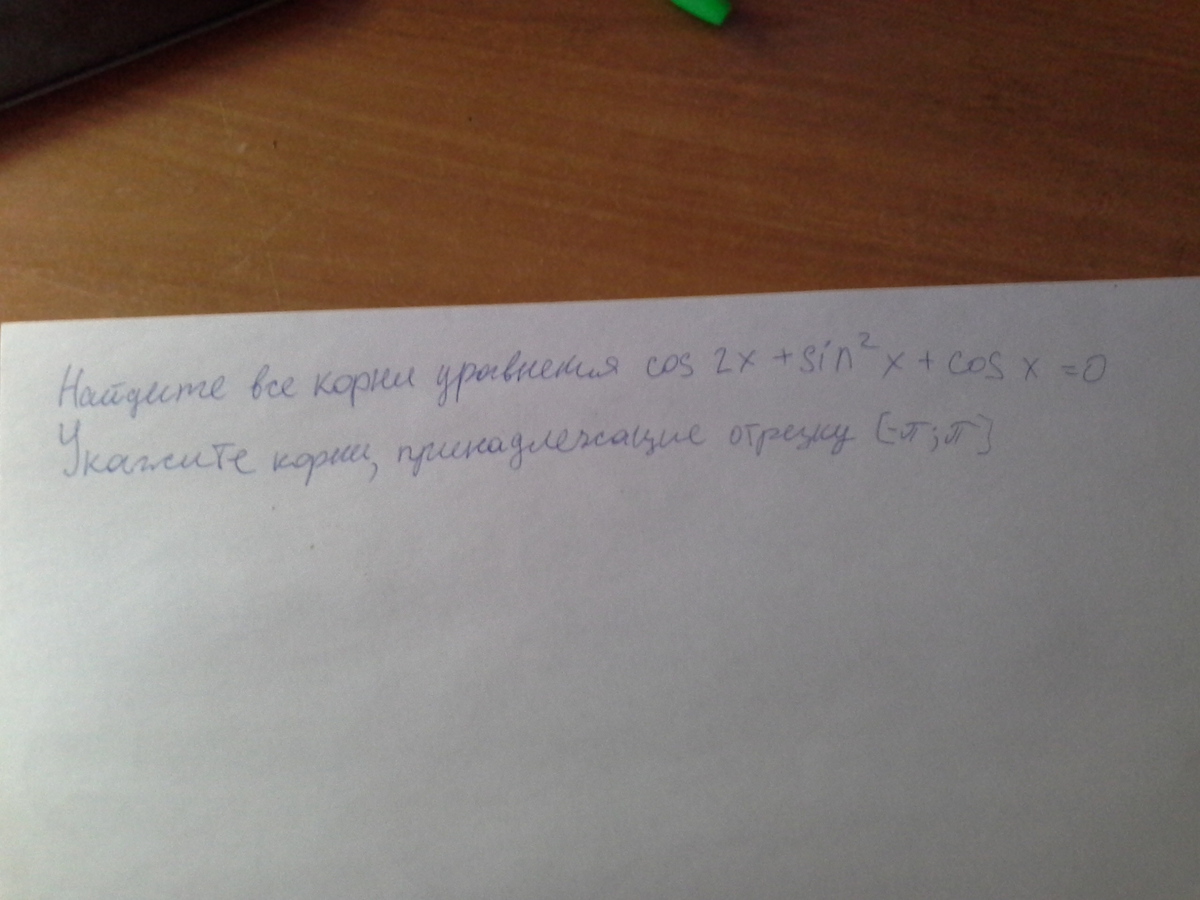 Найдите все корни уравнения cos 2x + sin² x + cos x = 0
Укажите корни, принадлежащие отрезку [-π; π]